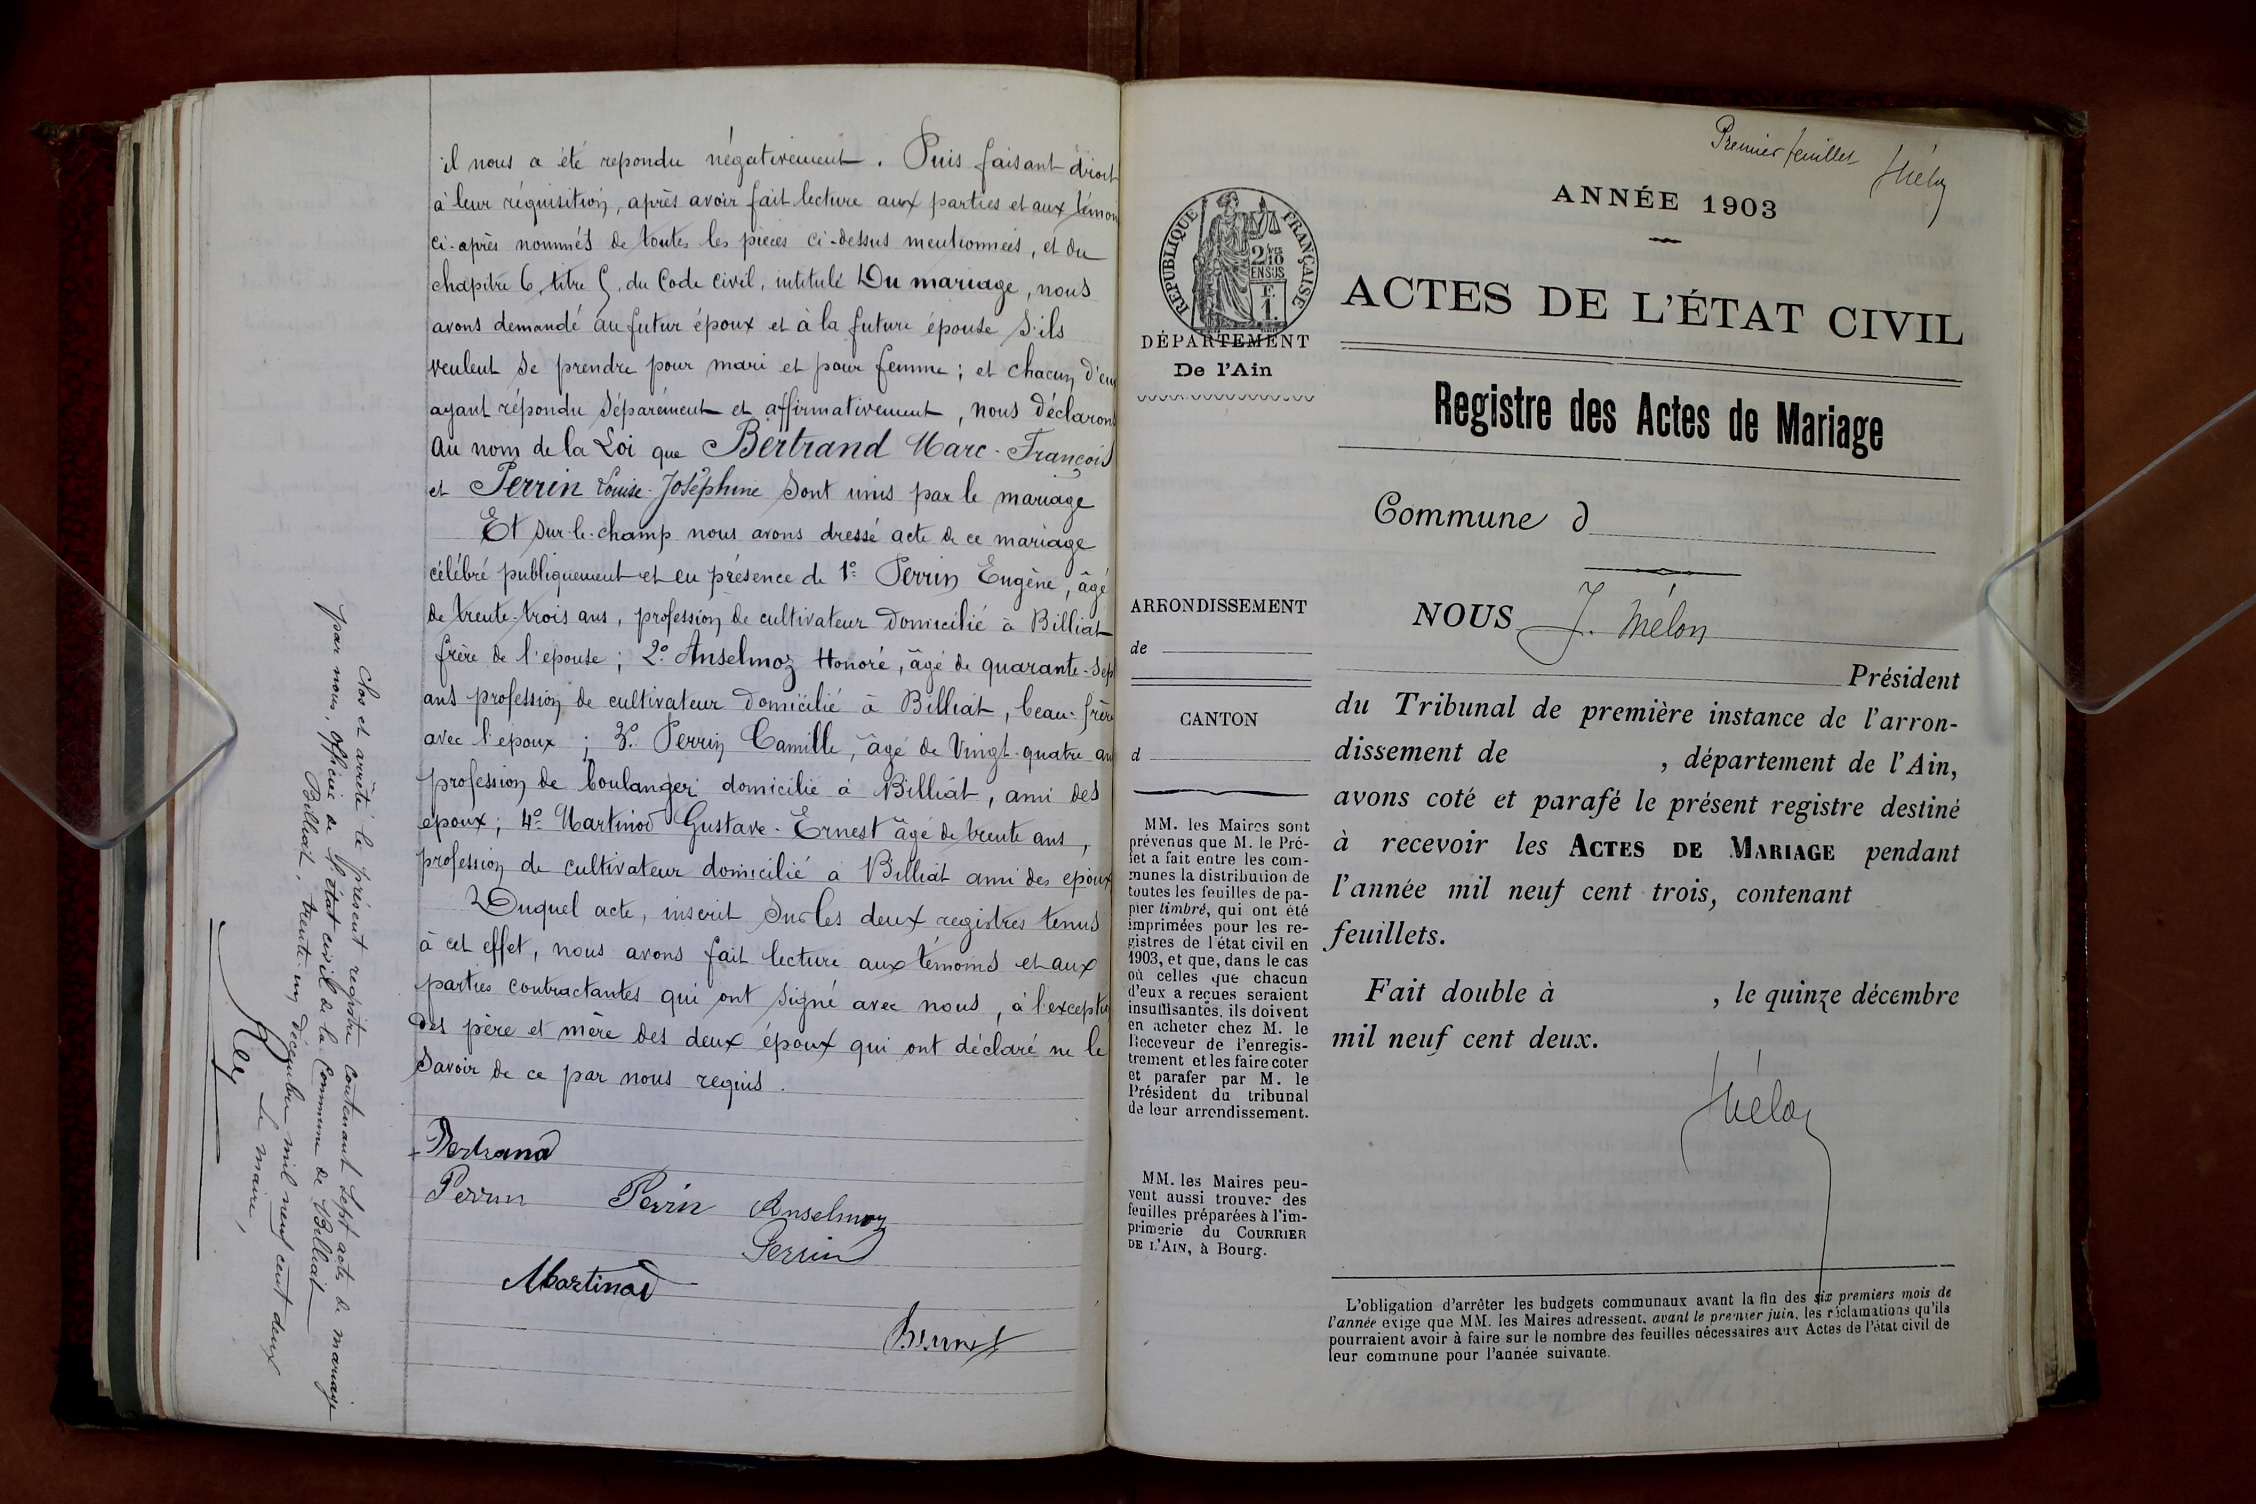 il nous a été repondu négativement. Puis faisant droit
à leur réquisition, après avoir fait lecture aux parties et aux témoin
ci-après nommés de toutes les pièces ci-dessus mentionnées, et du
chapitre 6, titre 5, du Code civil, intitulé Du mariage, nous
avons demandé au futur époux et à la future épouse s'ils
veulent se prendre pour mari et pour femme ; et chacun d'eux
ayant répondu séparément et affirmativement, nous déclarons
au nom de la Loi que Bertrand Marc-François
et Perrin Louise-Joséphine sont unis par le mariage
Et sur-le-champ nous avons dressé acte de ce mariage
célébré publiquement et en présence de 1° Perrin Eugène, âgé
de trente-trois ans, profession de cultivateur domicilié à Billiat
frère de l'epouse ; 2° Anselmoz Honoré, âgé de quarante-sept
ans profession de cultivateur domicilié à Billiat, beau-frère
avec l'epoux ; 3° Perrin Camille, âgé de vingt-quatre ans
profession de boulanger domicilié à Billiat, ami des
époux ; 4° Martinod Gustave-Ernest âgé de trente ans,
profession de cultivateur domicilié à Billiat ami des époux
Duquel acte, inscrit sur les deux registres tenus
à cet effet, nous avons fait lecture aux témoins et aux
parties contractantes qui ont signé avec nous, à l'exception
des père et mère des deux époux qui ont déclaré ne le
savoir de ce par nous requis.
Bertrand
Perrin Perrin Anselmoz
Perrin
Martinod
Clos et arrêté le présent registre contenant sept actes de mariage
par nous, officier de l'état civil de la Commune de Billiat
Billiat, trente-un décembre mil neuf cent deux
Le maire,
Premier feuillet Mélon
ANNÉE 1903
RÉPUBLIQUE FRANÇAISE
2/10
EN SUS
F.
1.
ACTES DE L'ÉTAT CIVIL
DÉPARTEMENT
De l'Ain
Registre des Actes de Mariage
Commune d
ARRONDISSEMENT
de
CANTON
d
NOUS J. Mélon
Président
du Tribunal de première instance de l'arron-
dissement de , département de l'Ain,
avons coté et parafé le présent registre destiné
à recevoir les ACTES DE MARIAGE pendant
l'année mil neuf cent trois, contenant
feuillets.
Fait double à , le quinze décembre
mil neuf cent deux.
Mélon
MM. les Maires sont
prévenus que M. le Pré-
fet a fait entre les com-
munes la distribution de
toutes les feuilles de pa-
pier timbré, qui ont été
imprimées pour les re-
gistres de l'état civil en
1903, et que, dans le cas
où celles que chacun
d'eux a reçues seraient
insuffisantes, ils doivent
en acheter chez M. le
Receveur de l'enregis-
trement et les faire coter
et parafer par M. le
Président du tribunal
de leur arrondissement.
MM. les Maires peu-
vent aussi trouver des
feuilles préparées à l'im-
primerie du COURRIER
DE L'AIN, à Bourg.
L'obligation d'arrêter les budgets communaux avant la fin des six premiers mois de
l'année exige que MM. les Maires adressent, avant le premier juin, les réclamations qu'ils
pourraient avoir à faire sur le nombre des feuilles nécessaires aux Actes de l'état civil de
leur commune pour l'année suivante.